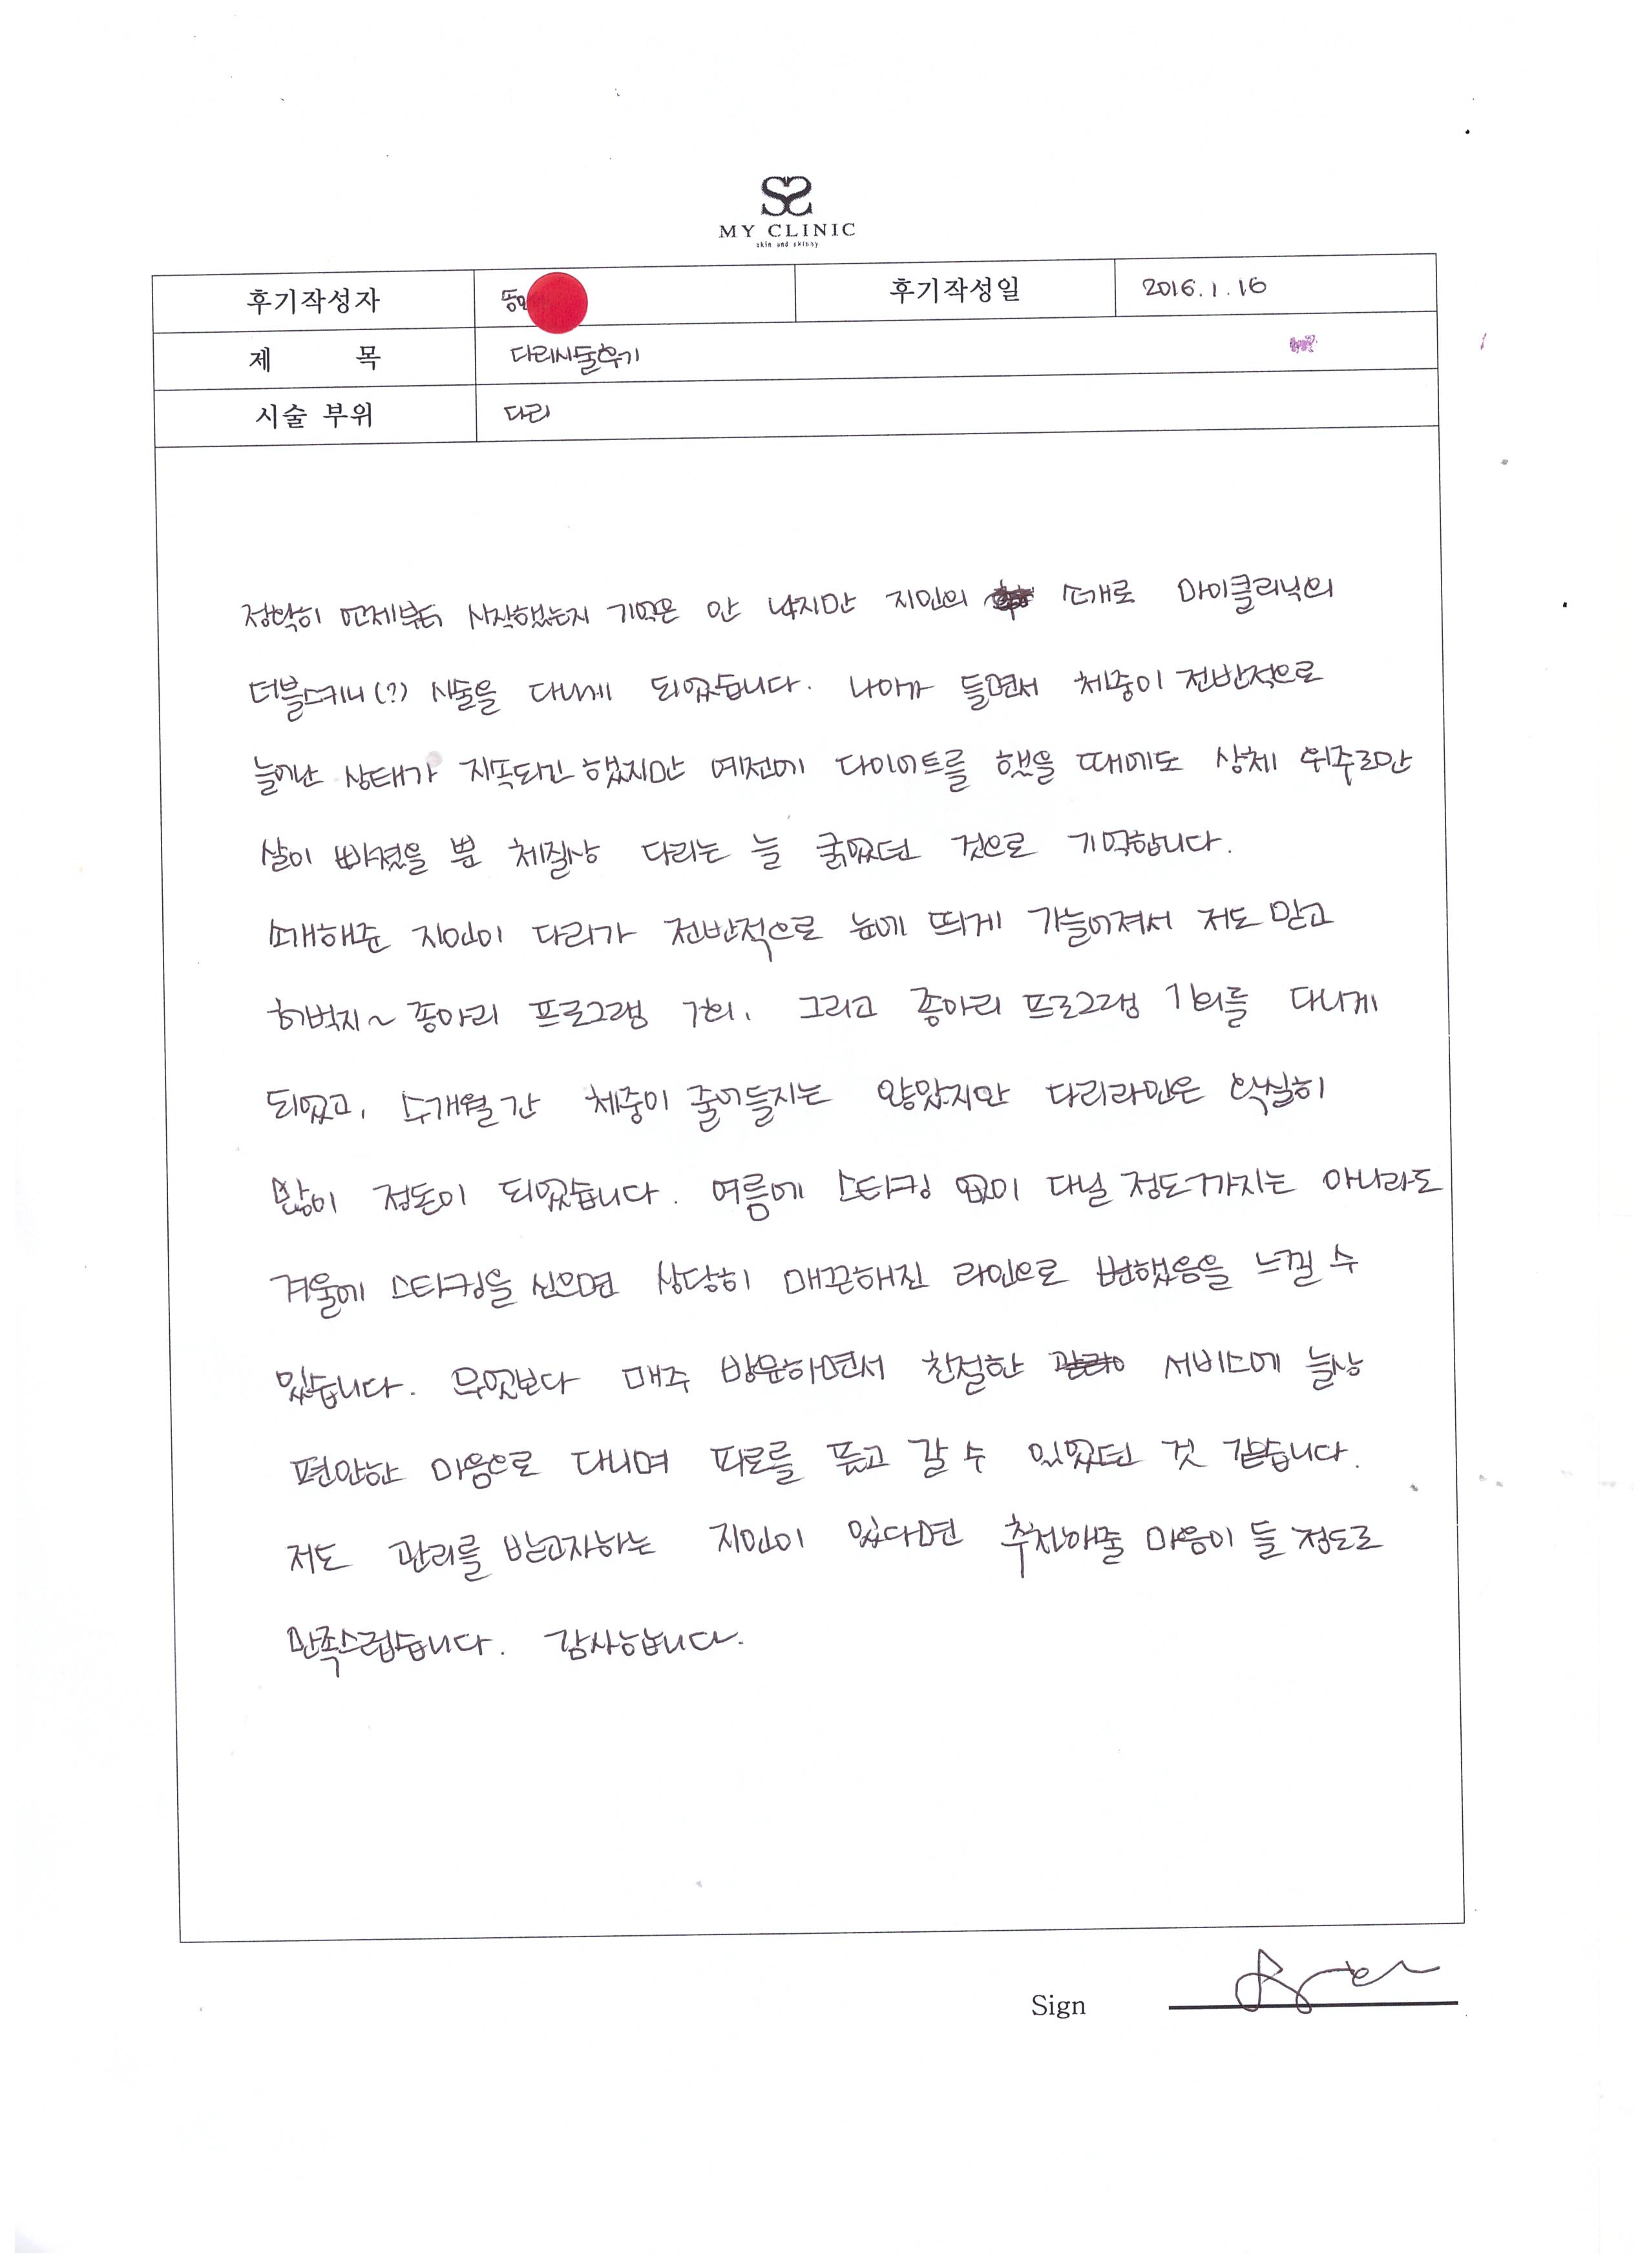 MY CLINIC
skin and skinny
후기작성자 후기작성일 2016.1.16
제 목 다리시술후기
시술 부위 다리
정확히 언제부터 시작했는지 기억은 안 나지만 지인의 소개로 마이클리닉의
더블스키니(?) 시술을 다니게 되었습니다. 나이가 들면서 체중이 전반적으로
늘어난 상태가 지속되긴 했지만 예전에 다이어트를 했을 때에도 상체 위주로만
살이 빠졌을 뿐 체질상 다리는 늘 굵었던 것으로 기억합니다.
소개해준 지인이 다리가 전반적으로 눈에 띄게 가늘어져서 저도 믿고
허벅지~종아리 프로그램 7회, 그리고 종아리 프로그램 1회를 다니게
되었고, 수개월간 체중이 줄어들지는 않았지만 다리라인은 확실히
많이 정돈이 되었습니다. 여름에 스타킹 없이 다닐 정도까지는 아니라도
겨울에 스타킹을 신으면 상당히 매끈해진 라인으로 변했음을 느낄 수
있습니다. 무엇보다 매주 방문하면서 친절한 서비스에 늘상
편안한 마음으로 다니며 피로를 풀고 갈 수 있었던 것 같습니다.
저도 관리를 받고자하는 지인이 있다면 추천해줄 마음이 들 정도로
만족스럽습니다. 감사합니다.
Sign